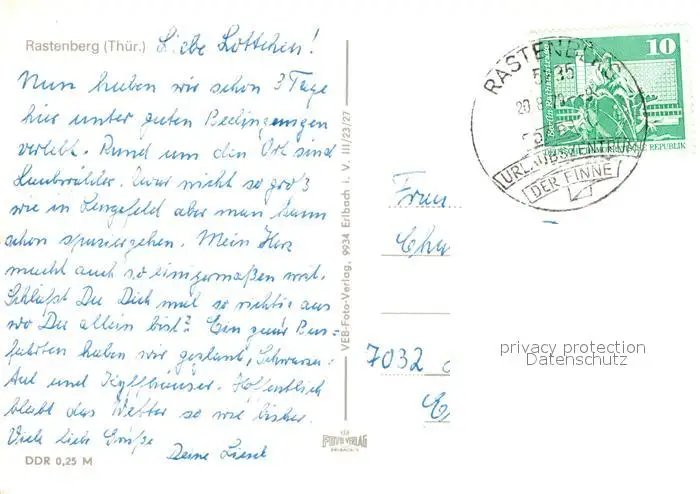 Rastenberg (Thür.) Liebe Lottchen!
Nun haben wir schon 3 Tage
hier unter guten Bedingungen
verlebt. Rund um den Ort sind
Laubwälder. Zwar nicht so groß
wie in Lengefeld aber man kann
schon spazierengehen. Mein Herz
macht auch so einigermaßen mit.
Schläfst Du Dich mal so richtig aus
wo Du allein bist? Ein paar Bus-
fahrten haben wir geplant, Schwarza-
Tal und Kyffhäuser. Hoffentlich
bleibt das Wetter so wie bisher.
Viele liebe Grüße
Deine Liesel
DDR 0,25 M
VEB-Foto-Verlag, 9934 Erlbach i. V. III/23/27
VEB
FOTO VERLAG
ERLBACH/V.
RASTENBERG
URLAUBSZENTRUM
DER FINNE
10
REPUBLIK
Frau
7032
privacy protection
Datenschutz